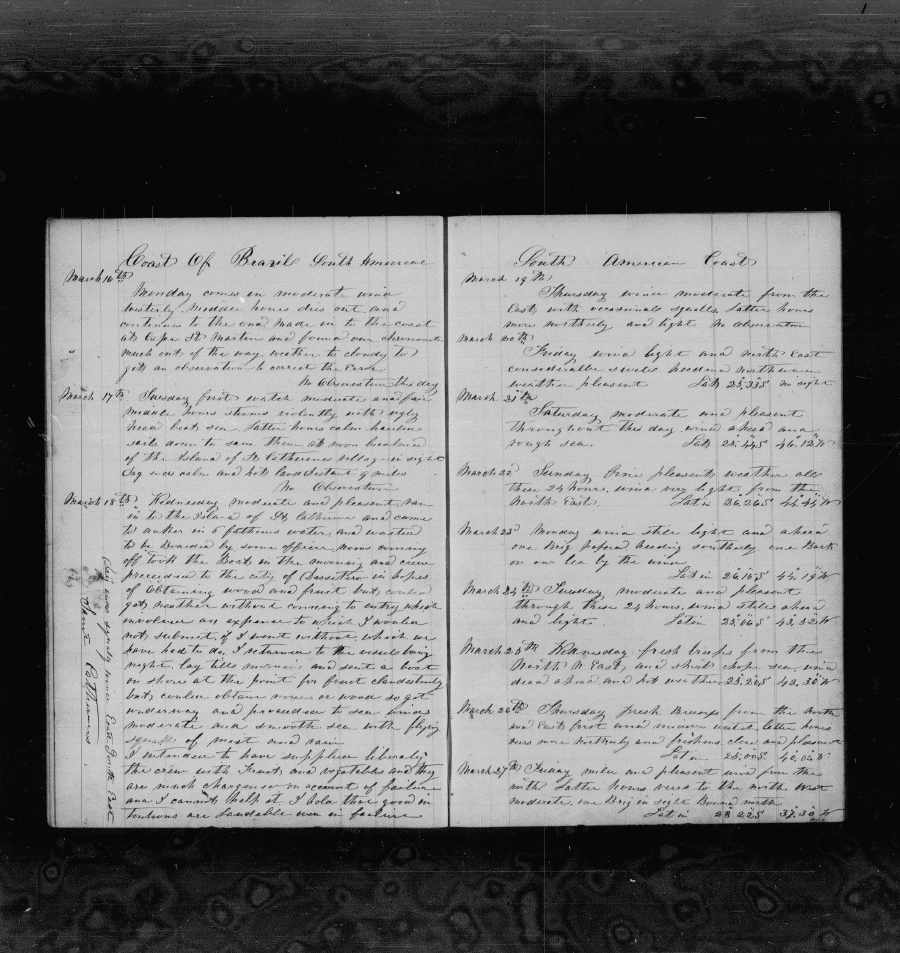 Coast Of Brazil South American
March 16th
Monday comes in moderate wind
Westerly. Middle hours dies out and
continues to the end made in to the coast
at Cape St Martin and found our chronometer
much out of the way weather to cloudy to
get an observation to correct the Error
No Observation this day
March 17th Tuesday first watch moderate and fair
middle hours storms violently with ugly
head beat sea. latter hours calm hauled
sails down to save them at noon
of the Island of St Catherines village in sight
Day ends calm and hot land distant 9 miles
No Observation
March 18th Wednesday moderate and pleasant ran
in to the Island of St Catherine and came
to anker in 6 fathoms water and waited
to be Boarded by some officer, none coming
off took the Boat in the morning and crew
proceeded to the city of in hopes
of Obtaining wood and fruit but could
get neather without coming to entry which
involves an expense to which I would
not submit, if I went without, which we
have had to do, I returned to the vessel being
night. lay tills morning and sent a boat
on shore at the point for fruit clandestinely
but could obtain none or wood so got
underway and proceeded to sea wind
moderate and smooth sea with flying
squalls of mist and rain
I intended to have supplied liberaly
the crew with Fruit and vegetables and they
are much chargened on account of failure
and I cannot help it. I hold that good in
tentions are laudable even in failure
Day ends squaly wind East South East
Saint Catharines
South American Coast
March 19th
Thursday wind moderate from the
East with occasional squalls latter hours
more northerly and light No Observation
March 20th
Friday wind light and north East
considerable swell heeding northward
weather pleasant Lat 25°33S no sight
March 21st
Saturday moderate and pleasant
throughout this day wind ahead and
rough sea. Lat 25°44S 46°12W
March 22d Sunday Fine pleasant weather all
these 24 hours, wind very light, from the
North East. Lat in 26°26S 44°44W
March 23d Monday wind still light and ahead
one Brig passed heeding southerly one Bark
on our lea by the wind
Lat in 26°10S 44°19W
March 24th Tuesday moderate and pleasant
through these 24 hours, wind still ahead
and light. Lat in 25°06S 43°32W
March 25th Wednesday fresh breezes from the
North N East, and short chope sea, wind
dead ahead and hot weather 25°20S 42°30W
March 26th Thursday fresh Breezes from the North
and East first and middle watch latter hours
vers more northerly and freshens clear and pleasant
Lat in 25°00S 40°02W
March 27th Friday mild and pleasant wind from the
north Latter hours vers to the north West
moderate, one Brig in sight Bound north
Lat in 23°22S 37°30W